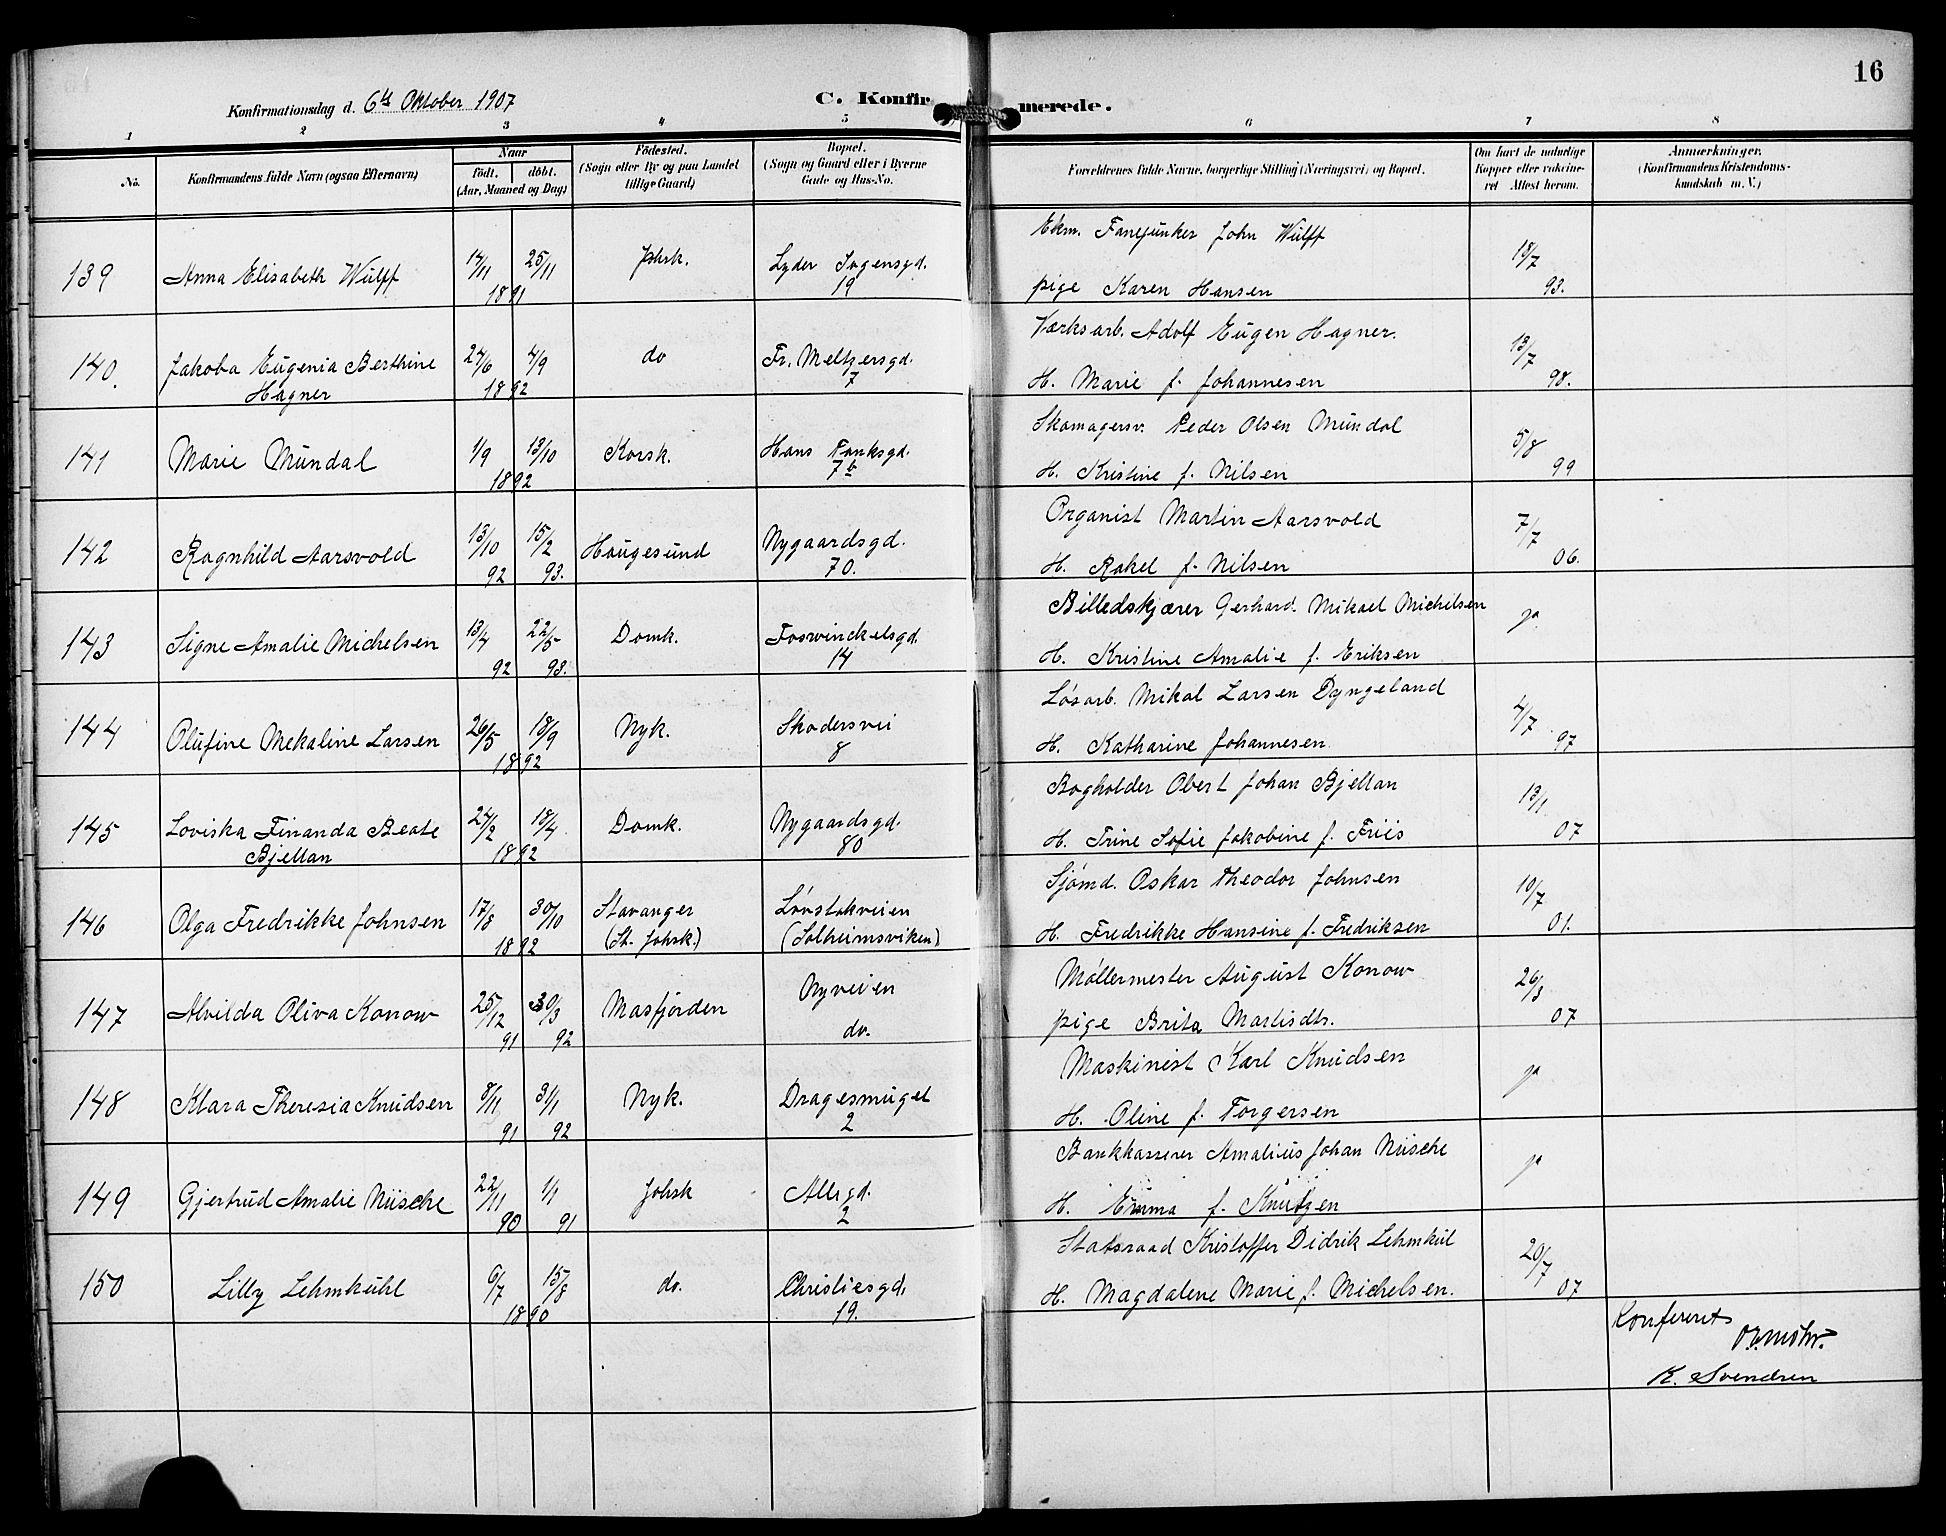 16
Konfirmationsdag d. 6te Oktober 1907
C. Konfirmerede.
1 2 3 4 5 6 7 8
No.
Konfirmandens fulde Navn (ogsaa Efternavn)
Naar
födt. döbt.
(Aar, Maaned og Dag)
Födested.
(Sogn eller By og paa Landet
tillige Gaard)
Bopæl.
(Sogn og Gaard eller i Byerne
Gade og Hus-No.
Forældrenes fulde Navne, borgerlige Stilling (Næringsvei) og Bopæl.
Om havt de naturlige
Kopper eller vakcine-
ret Attest herom.
Anmærkninger.
(Konfirmandens Kristendoms-
kundskab m. V.)
139 Anna Elisabeth Wulff 17/11 25/11 1891 Johsk. Lyder Sagensgd. 19
Ekm. Fanejunker John Wulff
pige Karen Hansen 18/7 93.
140. Jakoba Eugenia Berthine
Hagner 24/6 4/9 1892 do Fr. Meltzersgd. 7
Værksarb. Adolf Eugen Hagner.
H. Marie f. Johannesen 13/7 98.
141 Marie Mundal 1/9 13/10 1892 Korsk. Hans Tanksgd. 7b
Skomagersv. Peder Olsen Mundal
H. Kristine f. Nilsen 5/8 99
142 Ragnhild Aarsvold 13/10 92 15/2 93. Haugesund Nygaardsgd. 70.
Organist Martin Aarsvold
H. Rakel f. Nilsen 7/7 06.
143 Signe Amalie Michelsen 13/4 92 22/5 93. Domk. Foswinckelsgd. 14
Billedskjærer Gerhard Mikael Michelsen
H. Kristine Amalie f. Eriksen ja
144 Olufine Mekaline Larsen 26/5 18/9 1892 Nyk. Skodersvei 8
Løsarb. Mikal Larsen Dyngeland
H. Katharine Johannesen 4/7 97
145 Loviska Finanda Beate
Bjellan 24/2 18/4 1892 Domk. Nygaardsgd. 80
Bogholder Obert Johan Bjellan
H. Trine Sofie Jakobine f. Friis 13/1 07
146 Olga Fredrikke Johnsen 17/8 30/10 1892 Stavanger
(St. Johsk.) Løvstakveien
(Solheimsviken)
Sjömd. Oskar Theodor Johnsen
H. Fredrikke Hansine f. Fredriksen 10/7 01.
147 Alvilda Oliva Konow 25/12 91 30/3 92 Masfjorden Nyveien
do.
Møllermester August Konow
pige Brita Martisdtr. 26/3 07
148 Klara Theresia Knudsen 8/11 91 31/1 92 Nyk. Dragesmuget 2
Maskinist Karl Knudsen
H. Oline f. Torgersen ja
149 Gjertrud Amalie Nüsche 22/11 90 1/1 91 Johsk Allegd. 2
Bankkasserer Amalius Johan Nüsche
H. Emma f. Knutzen ja
150 Lilly Lehmkuhl 6/7 15/8 1890 do. Christiesgd. 19.
Statsraad Kristoffer Didrik Lehmkul
H. Magdalene Marie f. Michelsen. 20/7 07
Konfereret
K. Svendsen